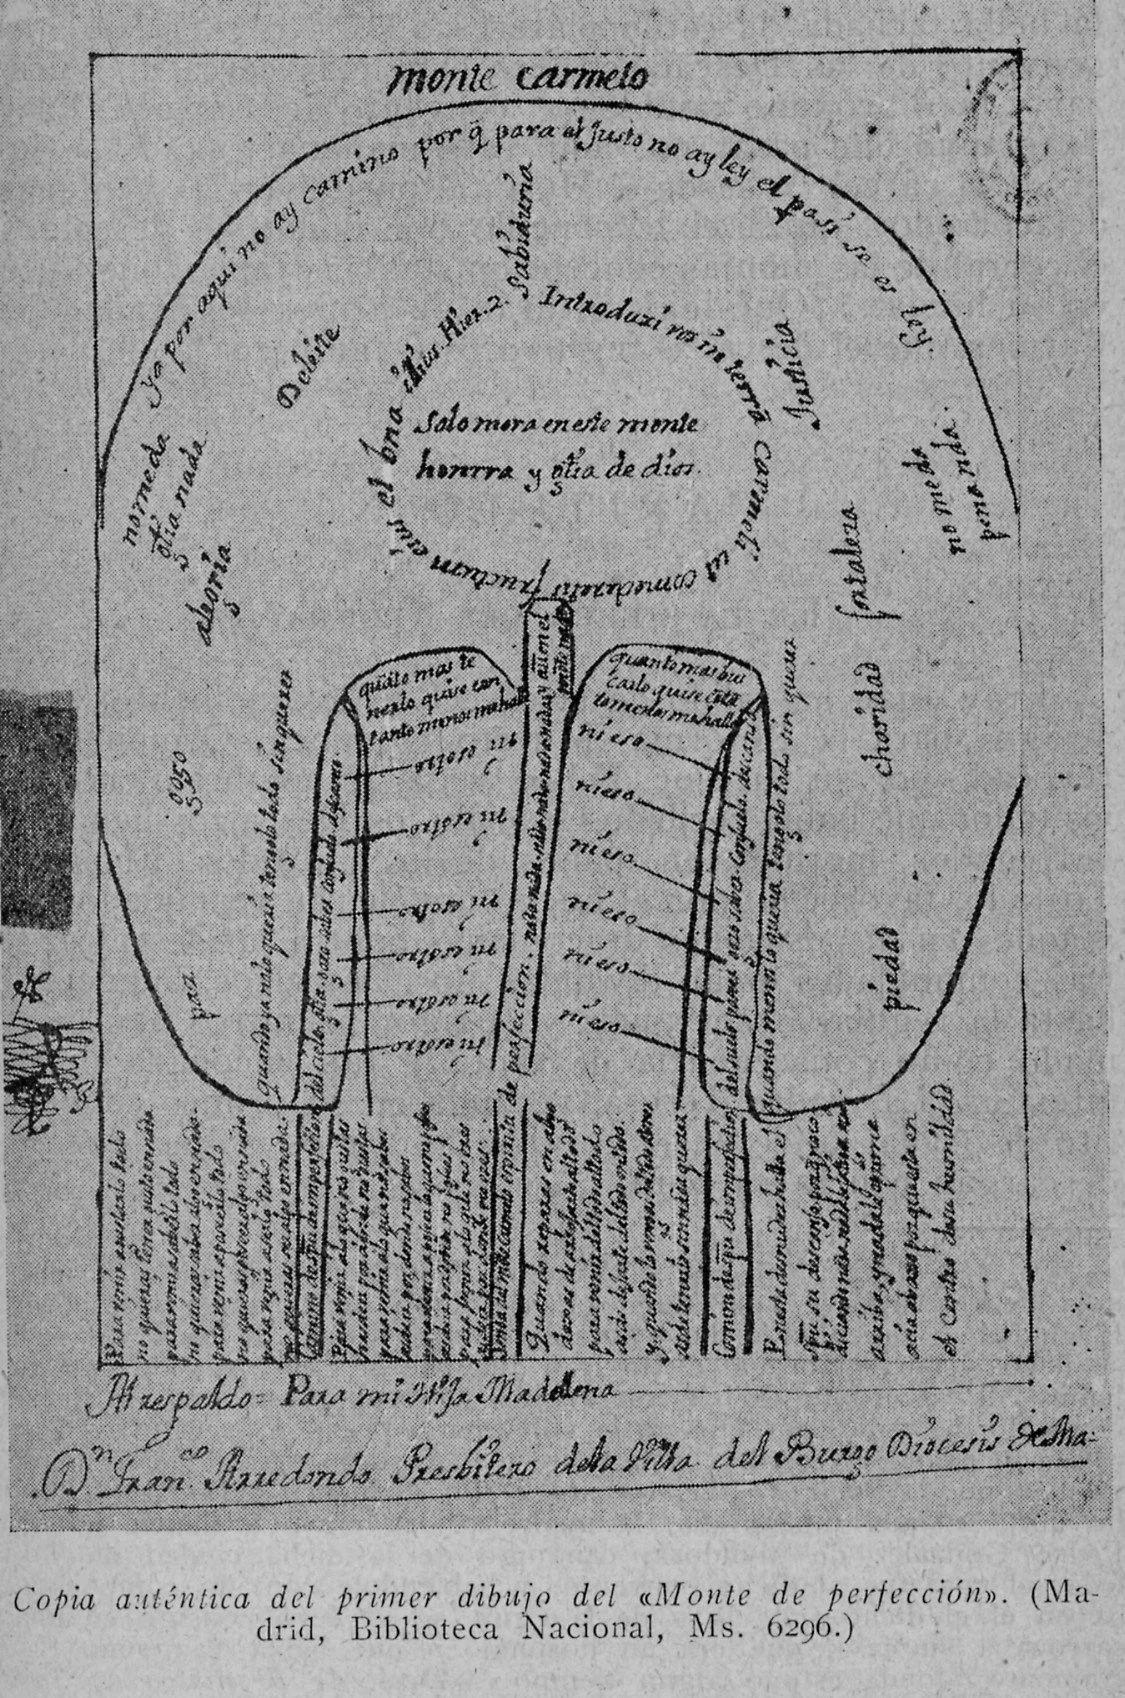 monte carmelo
ya por aqui no ay camino por q̃ para el Justo no ay ley el pasi se es ley.
Sabiduria
Deleite
Justicia
Introduxi vos in terra carmeli ut comederetis fructum eius et bna illius. Hier. 2.
Solo mora en este monte
honrra y glia de dios.
no me da
glia nada.
no me da
pena nda.
alegria
fortaleza
gozo
charidad
paz
piedad
quãto mas te
nerlo quise con
tanto menos me halle
quanto mas bus
carlo quise cõ tã
to menos me halle
nada nada nada nada nada nada y aũ en el
monte nada
quando ya no lo queria tengolo todo sin querer
quando menos lo queria tengolo todo sin querer
del cielo glia gozo saber consuelo descanso
del suelo poseer gozo saber consuelo descanso
ni esotro
ni esotro
ni esotro
ni esotro
ni esotro
ni esotro
ni eso
ni eso
ni eso
ni eso
ni eso
ni eso
Para venir a gustarlo todo
no quieras tener gusto en nada
para venir a saberlo todo
no quieras saber algo en nada.
para venir a poseerlo todo
no quieras poseer algo en nada
para venir a serlo todo
no quieras ser algo en nada.
camino de espũ de imperfection
Para venir a lo que no gustas
has de ir por donde no gustas
para venir a lo que no sabes
has de ir por donde no sabes
para venir a poseer lo que no posees
has de ir por donde no posees
para venir a lo que no eres
has de ir por donde no eres.
senda del monte carmelo espiritu de perfeccion.
Quando reparas en algo
dexas de arrojarte al todo
para venir del todo al todo
as de dejarte del todo en todo.
y quando lo vengas del todo a tener
as de tenerlo sin nada querer
Camino de espũ de imperfection
En esta desnudez halla el
espũ su descanso porq̃ no co
diciando nada nada le fatiga hacia
arriba, y nada le oprime
acia abaxo porque esta en
el centro de su humildad
Al respaldo= Para mi Hija Madalena
Dn. Franco. Arredondo Presbitero de la Villa del Burgo Diocesis de Ma=
Copia auténtica del primer dibujo del «Monte de perfección». (Ma-
drid, Biblioteca Nacional, Ms. 6296.)